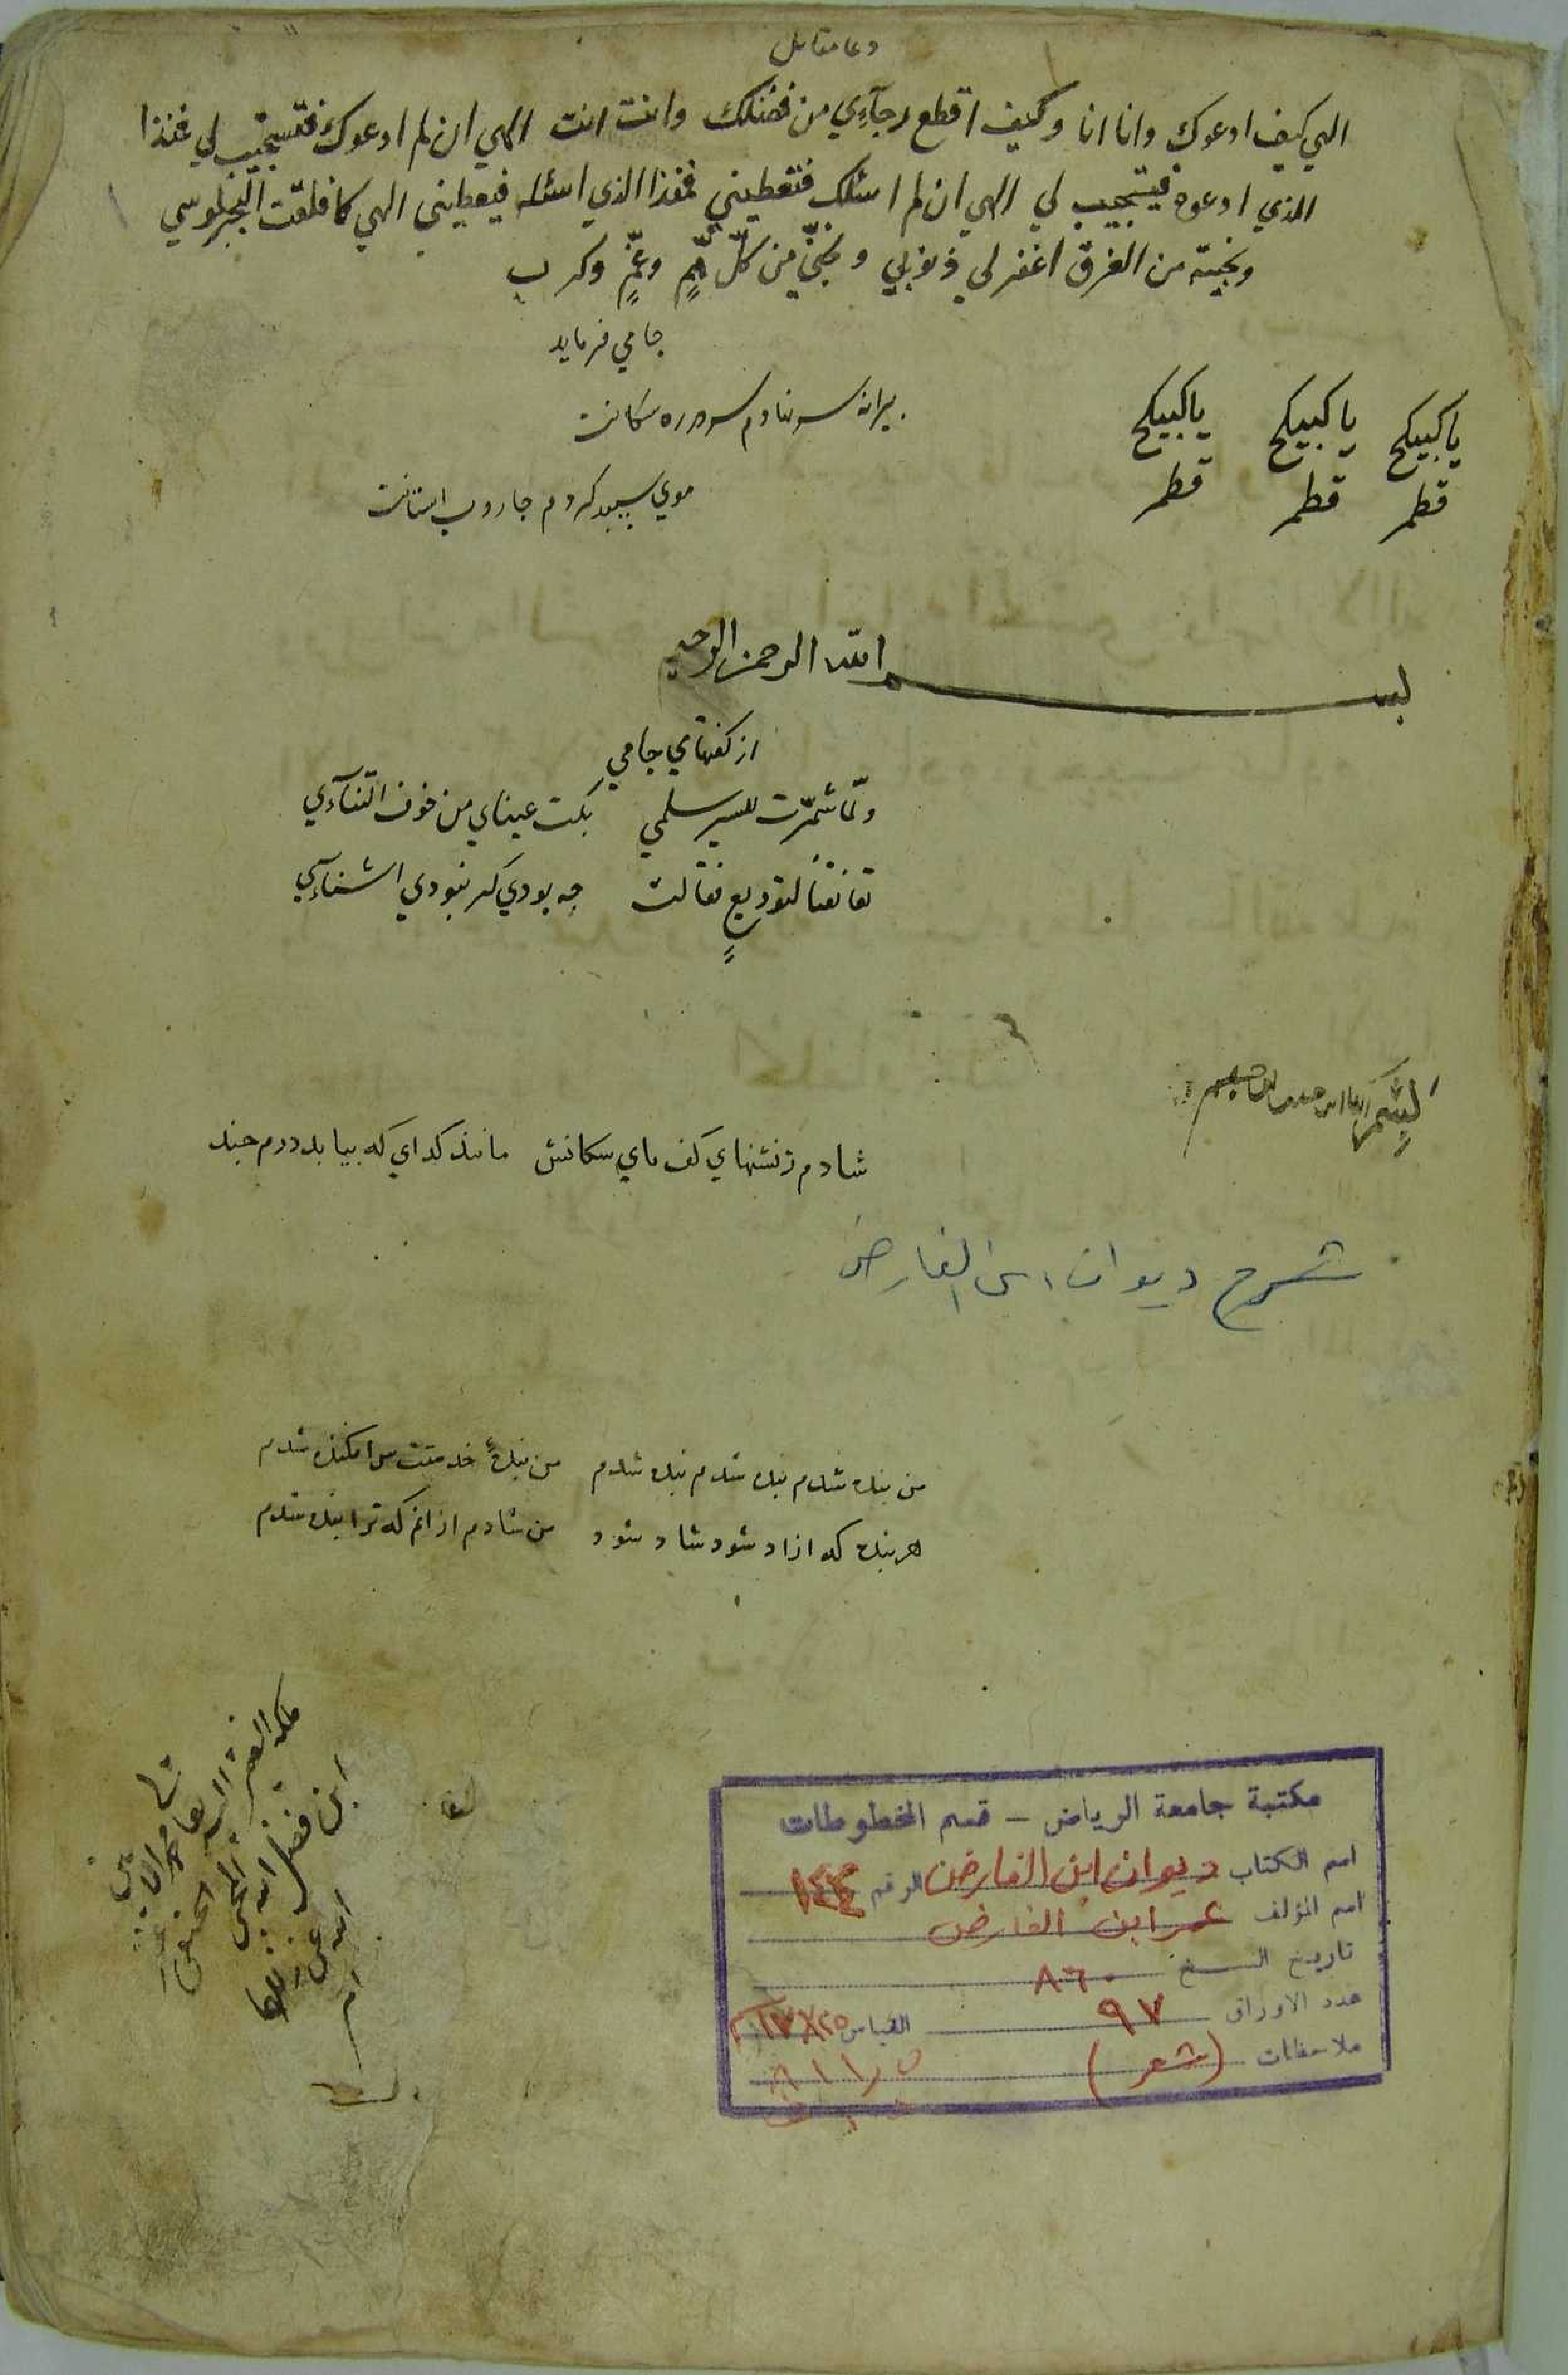 دعا مقاتل
الهي كيف ادعوك وانا انا وكيف اقطع رجآءي من فضلك وانت انت الهي ان لم ادعوك فتستجيب لي فمن ذا
الذي ادعوه فيستجيب لي الهي ان لم اسئلك فتعطيني فمن ذا الذي اسئله فيعطيني الهي كما فلقت البحر لموسي
ونجيته من الغرق اغفر لي ذنوبي ونجني من كلّ همٍّ وغمٍّ وكرب
جامي فرمايد
پیرانه سر نهادم سر در ره سکانت
موي سپيد كردم جاروب استانت
ياكبيكج ياكبيكج ياكبيكج
قطمر قطمر قطمر
بسم الله الرحمن الرحيم
از كفتهاي جامي
ولمّا شمّرت للسير سلمي بكت عيناي من خوف التنآءي
تعانقنا لتوديعٍ فقالت چه بودي كر نبودي اشنآءي
شادم ز نشنهاي كف پاي سكانش مانند كداي كه بيابد درم چند
شرح ديوان ابن الفارض
من بنده شدم بنده شدم بنده شدم من بندهٔ خدمتت سر افكنده شدم
هر بنده كه ازاد شود شاد شود من شادم از انم كه ترا بنده شدم
ملكه الفقير
محمد الامين
ابن فضل الله المحبي الحنفي
مكتبة جامعة الرياض - قسم المخطوطات
اسم الكتاب ديوان ابن الفارض الرقم ١٤٤
اسم المؤلف عمر ابن الفارض
تاريخ النسخ ٨٦٠
عدد الاوراق ٩٧ القياس
ملاحظات (شعر)